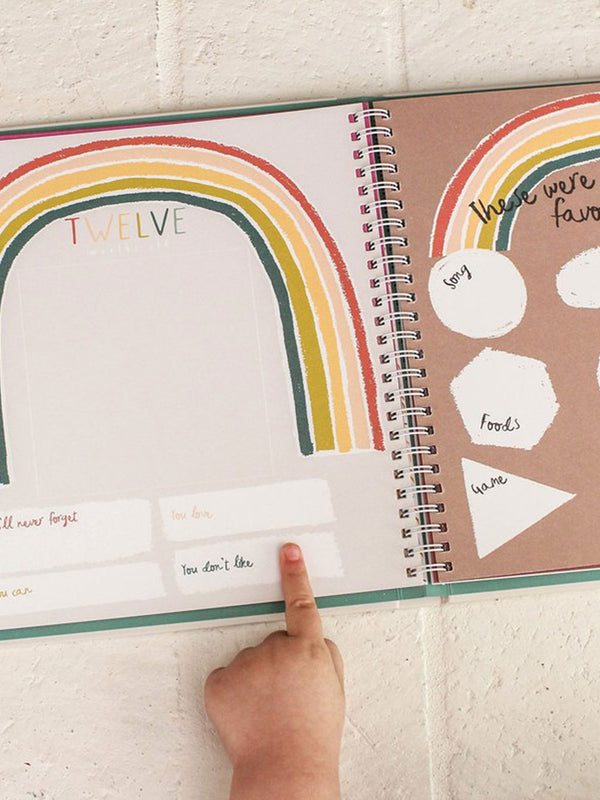 TWELVE
months old
I'll never forget
You love
You can
You don't like
These were
favo
Song
Foods
Game